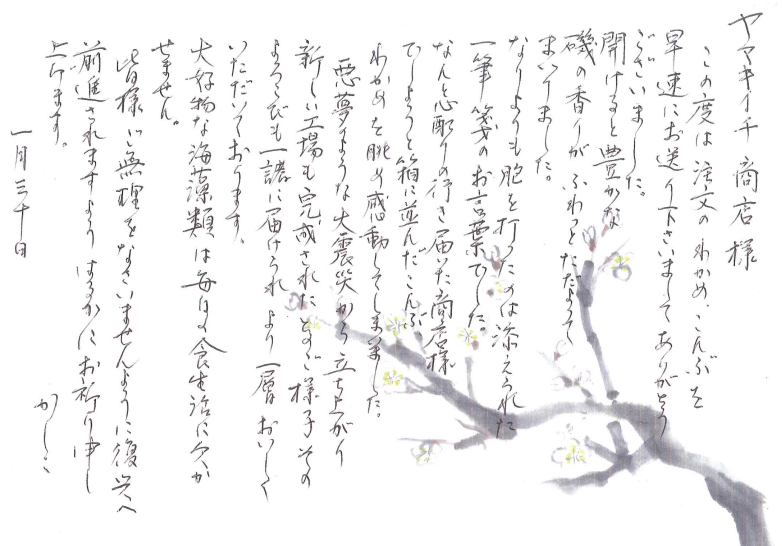 ヤマキイチ商店様
この度は注文のわかめ、こんぶを
早速にお送り下さいましてありがとう
ございました。
開けると豊かな
磯の香りがふわっとただよって
まいりました。
なりよりも胸を打ったのは添えられた
一筆箋のお言葉でした。
なんと心配りの行き届いた商店様
でしょうと箱に並んだこんぶ、
わかめを眺め感動してしまいました。
悪夢のような大震災から立ち上がり
新しい工場も完成されたとのご様子その
よろこびも一諸に届けられより一層おいしく
いただいております。
大好物な海藻類は毎日の食生活に欠か
せません。
皆様ご無理をなさいませんように復興へ
前進されますようはるかにお祈り申し
上げます。
かしこ
一月三十日